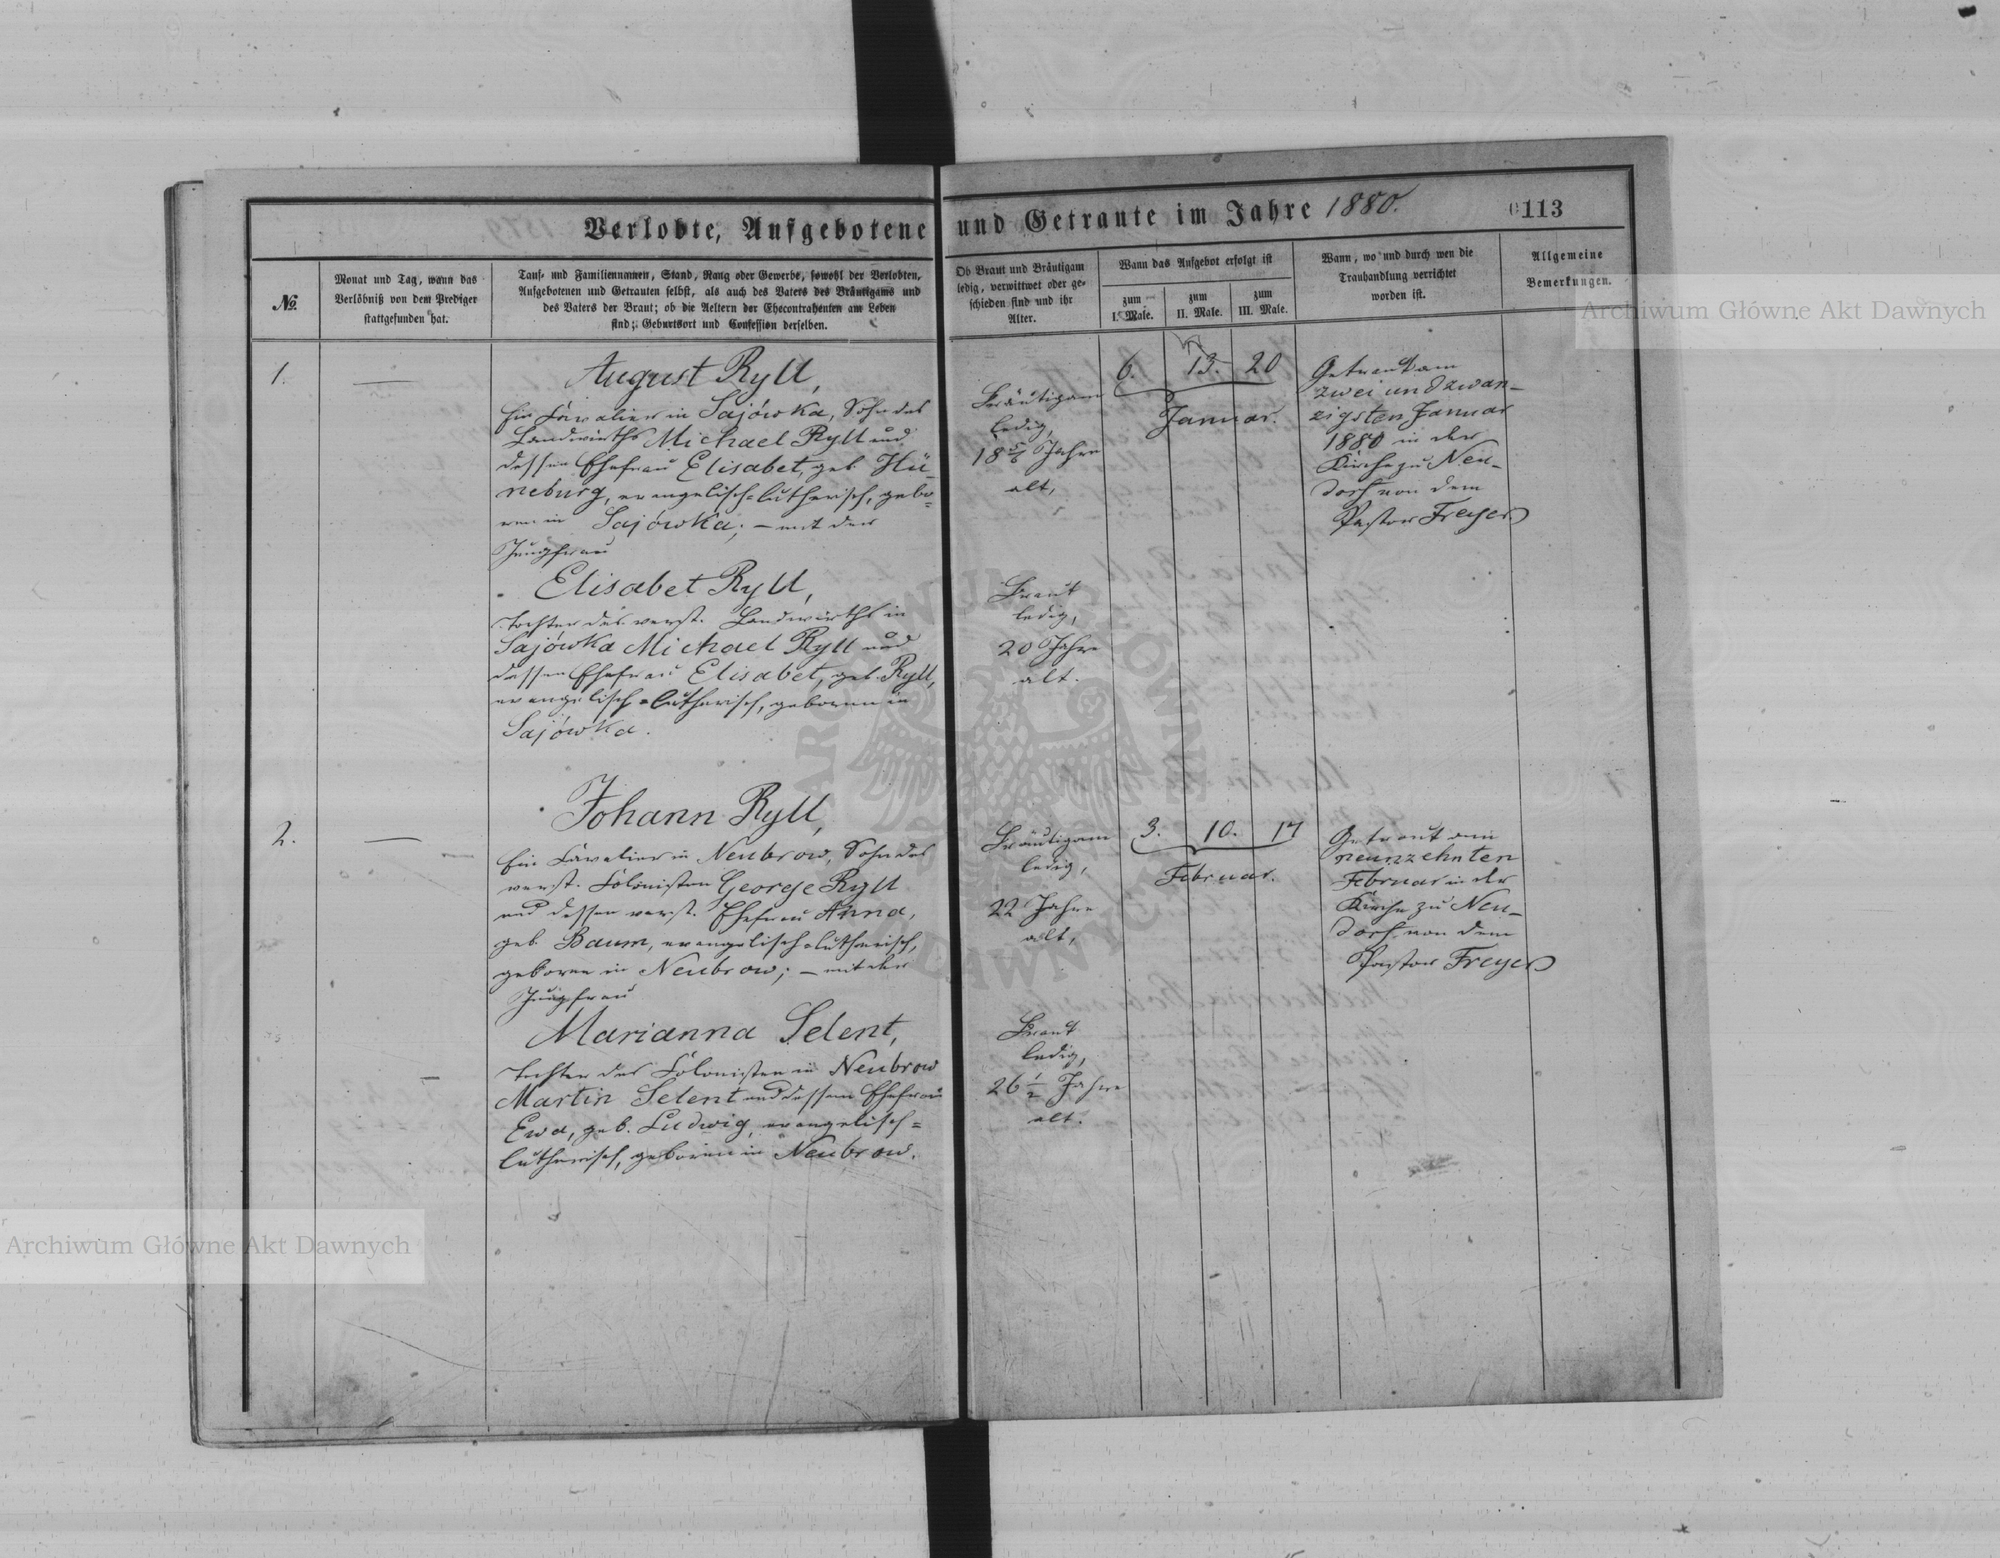 Verlobte, Aufgebotene und Getraute im Jahre 1880.
0113
№
Monat und Tag, wann das
Verlöbniß von dem Prediger
stattgefunden hat.
Tauf- und Familiennamen, Stand, Rang oder Gewerbe, sowohl der Verlobten,
Aufgebotenen und Getrauten selbst, als auch des Vaters des Bräutigams und
des Vaters der Braut; ob die Aeltern der Ehecontrahenten am Leben
sind; Geburtsort und Confession derselben.
Ob Braut und Bräutigam
ledig, verwittwet oder ge-
schieden sind und ihr
Alter.
Wann das Aufgebot erfolgt ist
zum
I. Male.
zum
II. Male.
zum
III. Male.
Wann, wo und durch wen die
Trauhandlung verrichtet
worden ist.
Allgemeine
Bemerkungen.
1.
—
August Ryll,
hie Cavalier in Sajówka, Sohn des
Landwirths Michael Ryll und
dessen Ehefrau Elisabet, geb. Hü-
neburg, evangelisch-lutherisch, gebo-
ren in Sajówka; – mit der
Jungfrau
Elisabet Ryll,
Tochter des verst. Landwirths in
Sajówka Michael Ryll und
dessen Ehefrau Elisabet, geb. Ryll,
evangelisch-lutherisch, geboren in
Sajówka.
Bräutigam
ledig,
18 5/6 Jahre
alt,
Braut
ledig,
20 Jahre
alt.
6. 13. 20
Januar.
Getraut am
zwei und zwan-
zigsten Januar
1880 in der
Kirche zu Neu-
dorf von dem
Pastor Freyer
2.
—
Johann Ryll,
Cavalier in Neubrow, Sohn des
verst. Colonisten George Ryll
und dessen verst. Ehefrau Anna,
geb. Baum, evangelisch-lutherisch,
geboren in Neubrow; – mit der
Jungfrau
Marianna Selent,
Tochter des Colonisten in Neubrow
Martin Selent und dessen Ehefrau
Ewa, geb. Ludwig, evangelisch-
lutherisch, geboren in Neubrow.
Bräutigam
ledig,
22 Jahre
alt,
Braut
ledig,
26 1/2 Jahre
alt.
3. 10. 17
Februar.
Getraut am
neunzehnten
Februar in der
Kirche zu Neu-
dorf von dem
Pastor Freyer
Archiwum Główne Akt Dawnych
Archiwum Główne Akt Dawnych
ARCHIWUM GŁÓWNE AKT DAWNYCH